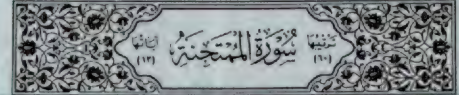 ترتيبها
(٦٠)
سُورَةُ المُمْتَحنَةِ
آياتها
(١٣)